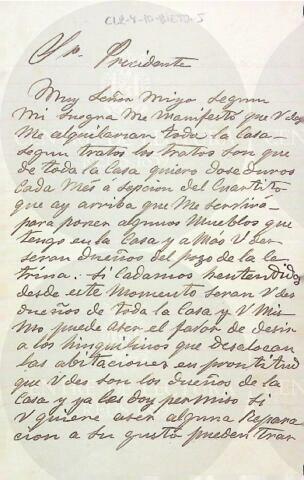 Sr. Precidente
Muy Señor Miyo segun
Mi suegra Me Manifestó que V des
Me alquilarian toda la Casa
segun tratos los tratos son que
de toda la Casa quiero dose duros
Cada Mes a sepcion del Cuartito
que ay arriba que Me servira
para poner algunos Muebles que
tengo en la Casa y a Mas V des
seran dueños del pozo de la le
trina. si Cadamos hentendidoz
desde este Momento seran V des
dueños de toda la Casa y V Mis
Mo puede aser el fabor de desir
a los hinquilinos que desalocan
las abitaciones en prontitud
que V des son los dueños de la
Casa y ya les doy permiso si
V quiere aser alguna Repara
cion a su gusto pueden trar